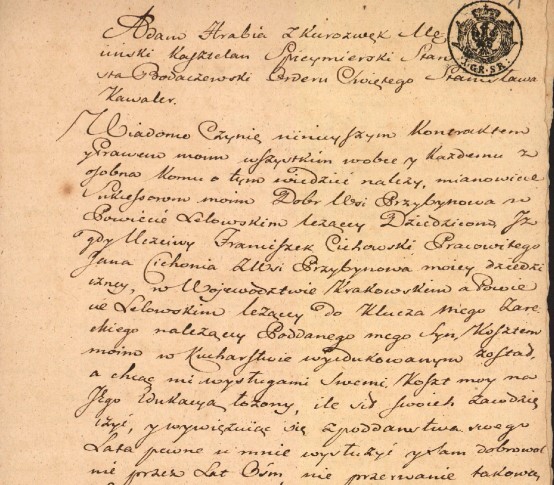 Adam Hrabia z Kurozwęk Mę
ciński Kasztelan Spicymierski Star
sta Brodaczewski Orderu Świętego Stanisława
Kawaler.
GR:SR:
Wiadomo Czynię ninieyszym Kontraktem
y Prawem moim wszystkim wobec y Każdemu z
osobna Komu o tym wiedzieć należy, mianowicie
Sukcessorom moim Dobr Wsi Przybynowa w
Powiecie Lelowskim leżący Dziedzicom, Iż
gdy Uczciwy Franciszek Cichowski Pracowitego
Jana Cichonia z Wsi Przybynowa moiey dziedzi
czney, w Woiewodztwie Krakowskiem a Powie
cie Lelowskim leżący do Klucza mego Żarec
kiego należący Poddanego mego Syn, Kosztem
moim w Kucharstwie wyedukowanym został,
a chcąc mi wysługami Swemi, Koszt moy na
Jego Edukacyą łożony, ile sił swoich zawdzię
czyć, y wywięzuiąc się z poddaństwa swego
Lata pewne u mnie wysłużyć y sam dobrowol
nie przez Lat Ośm nie przerwanie takową